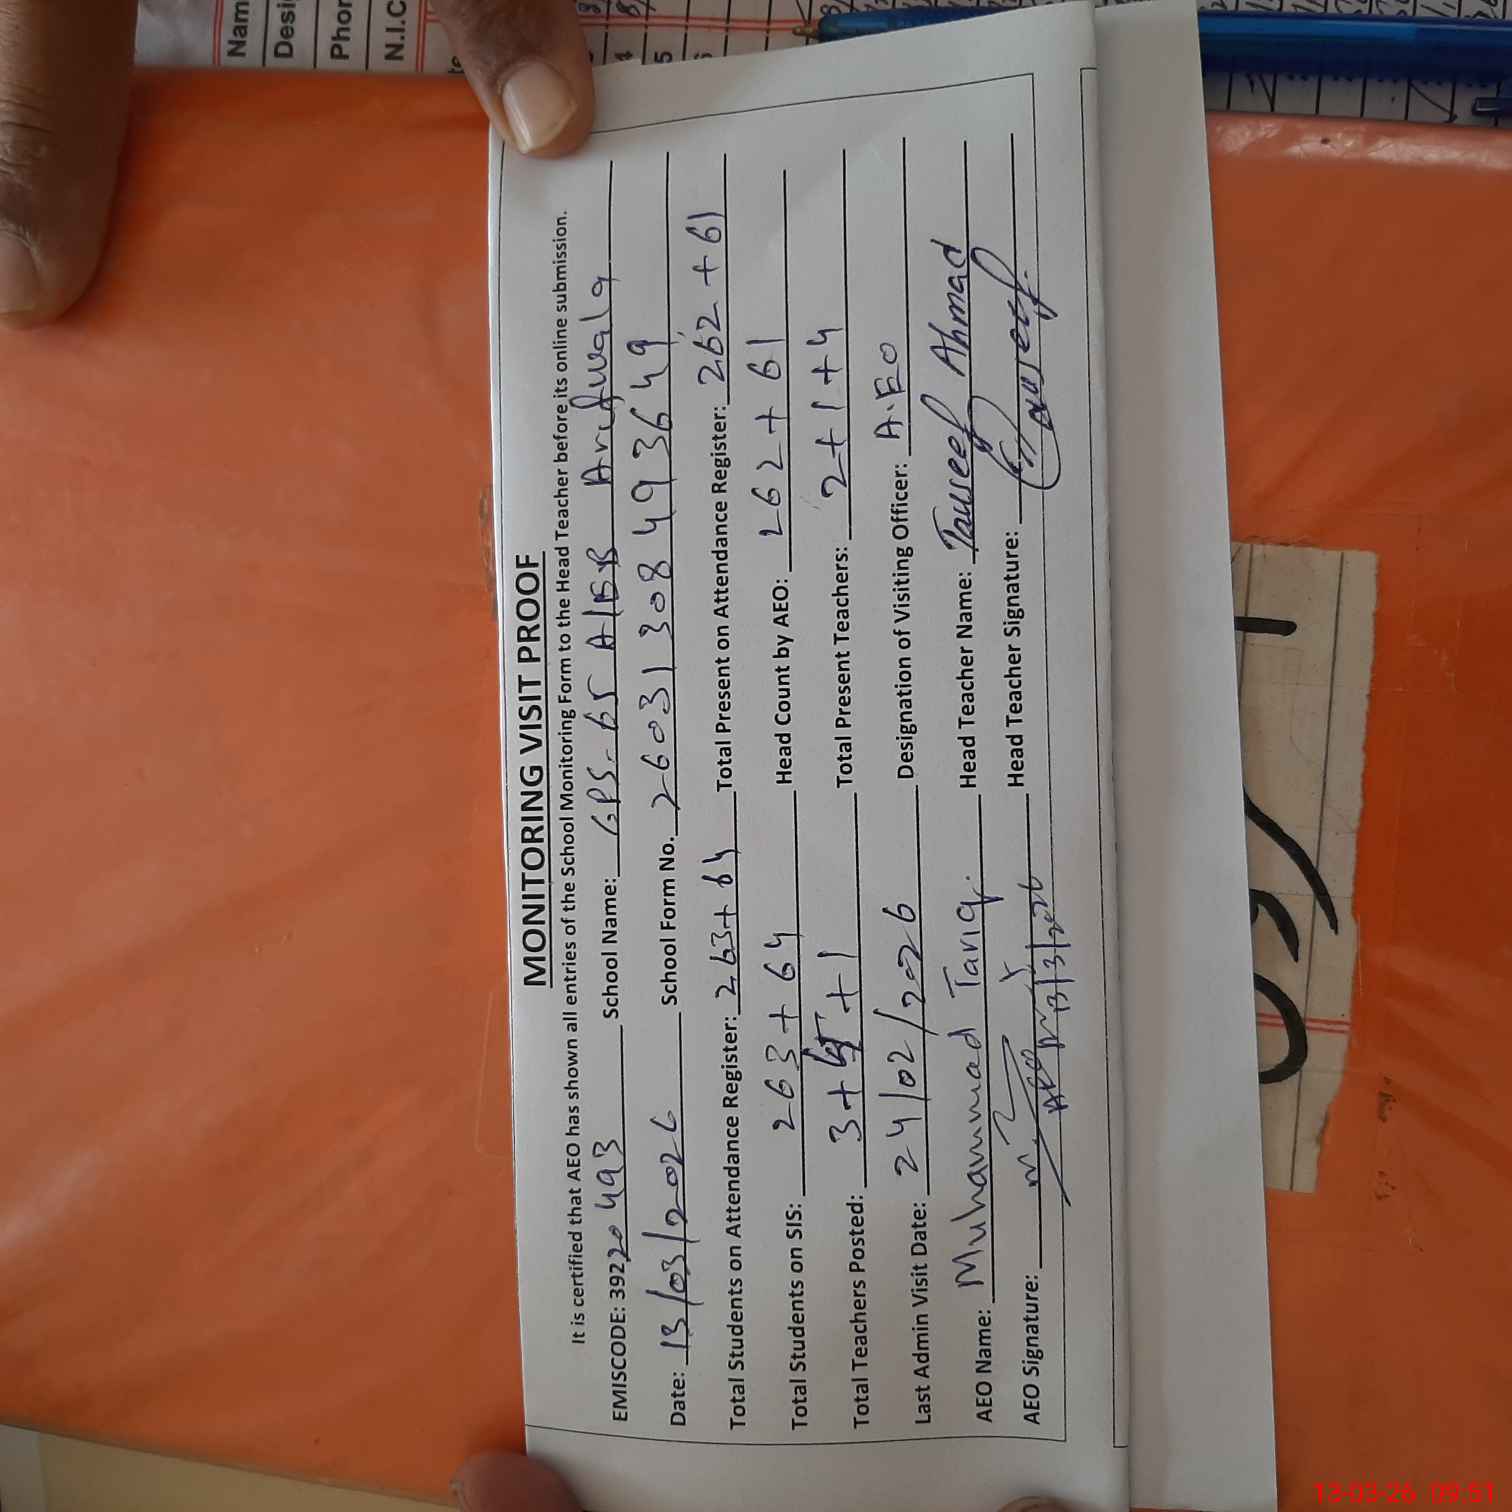 MONITORING VISIT PROOF
It is certified that AEO has shown all entries of the School Monitoring Form to the Head Teacher before its online submission.
EMISCODE: 39220493 School Name: GPS-65 A/EB Arifwala
Date: 13/03/2026 School Form No. 260313084936 49
Total Students on Attendance Register: 263+64 Total Present on Attendance Register: 262+61
Total Students on SIS: 263+64 Head Count by AEO: 262+61
Total Teachers Posted: 3+ +1 Total Present Teachers: 2+1+4
Last Admin Visit Date: 24/02/2026 Designation of Visiting Officer: A.E.O
AEO Name: Muhammad Tariq. Head Teacher Name: Tauseef Ahmad
AEO Signature: Head Teacher Signature: Tauseef
13/3/2026
Nam
Desi
Phor
N.I.C
13-03-26 09:51